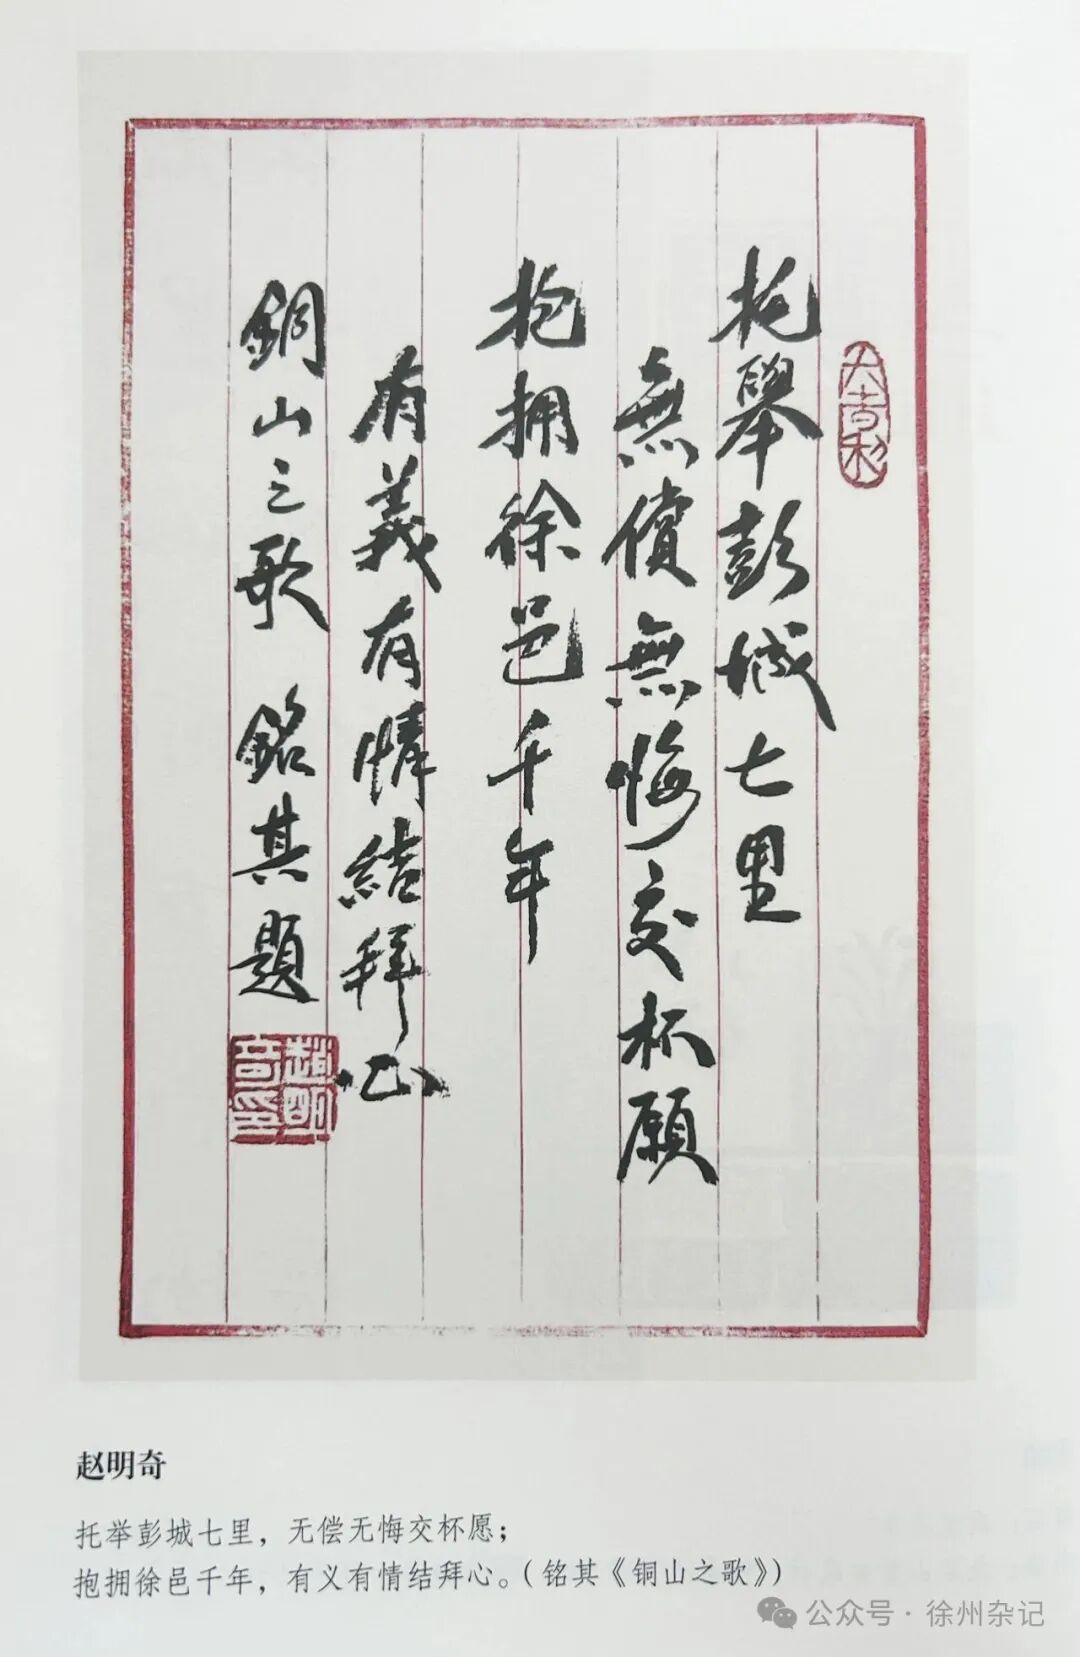 大吉利
托舉彭城七里
無償無悔交杯願
抱拥徐邑千年
有義有情結拜心
銅山之歌 銘其題
趙明奇印
赵明奇
托举彭城七里，无偿无悔交杯愿；
抱拥徐邑千年，有义有情结拜心。（铭其《铜山之歌》）
公众号·徐州杂记